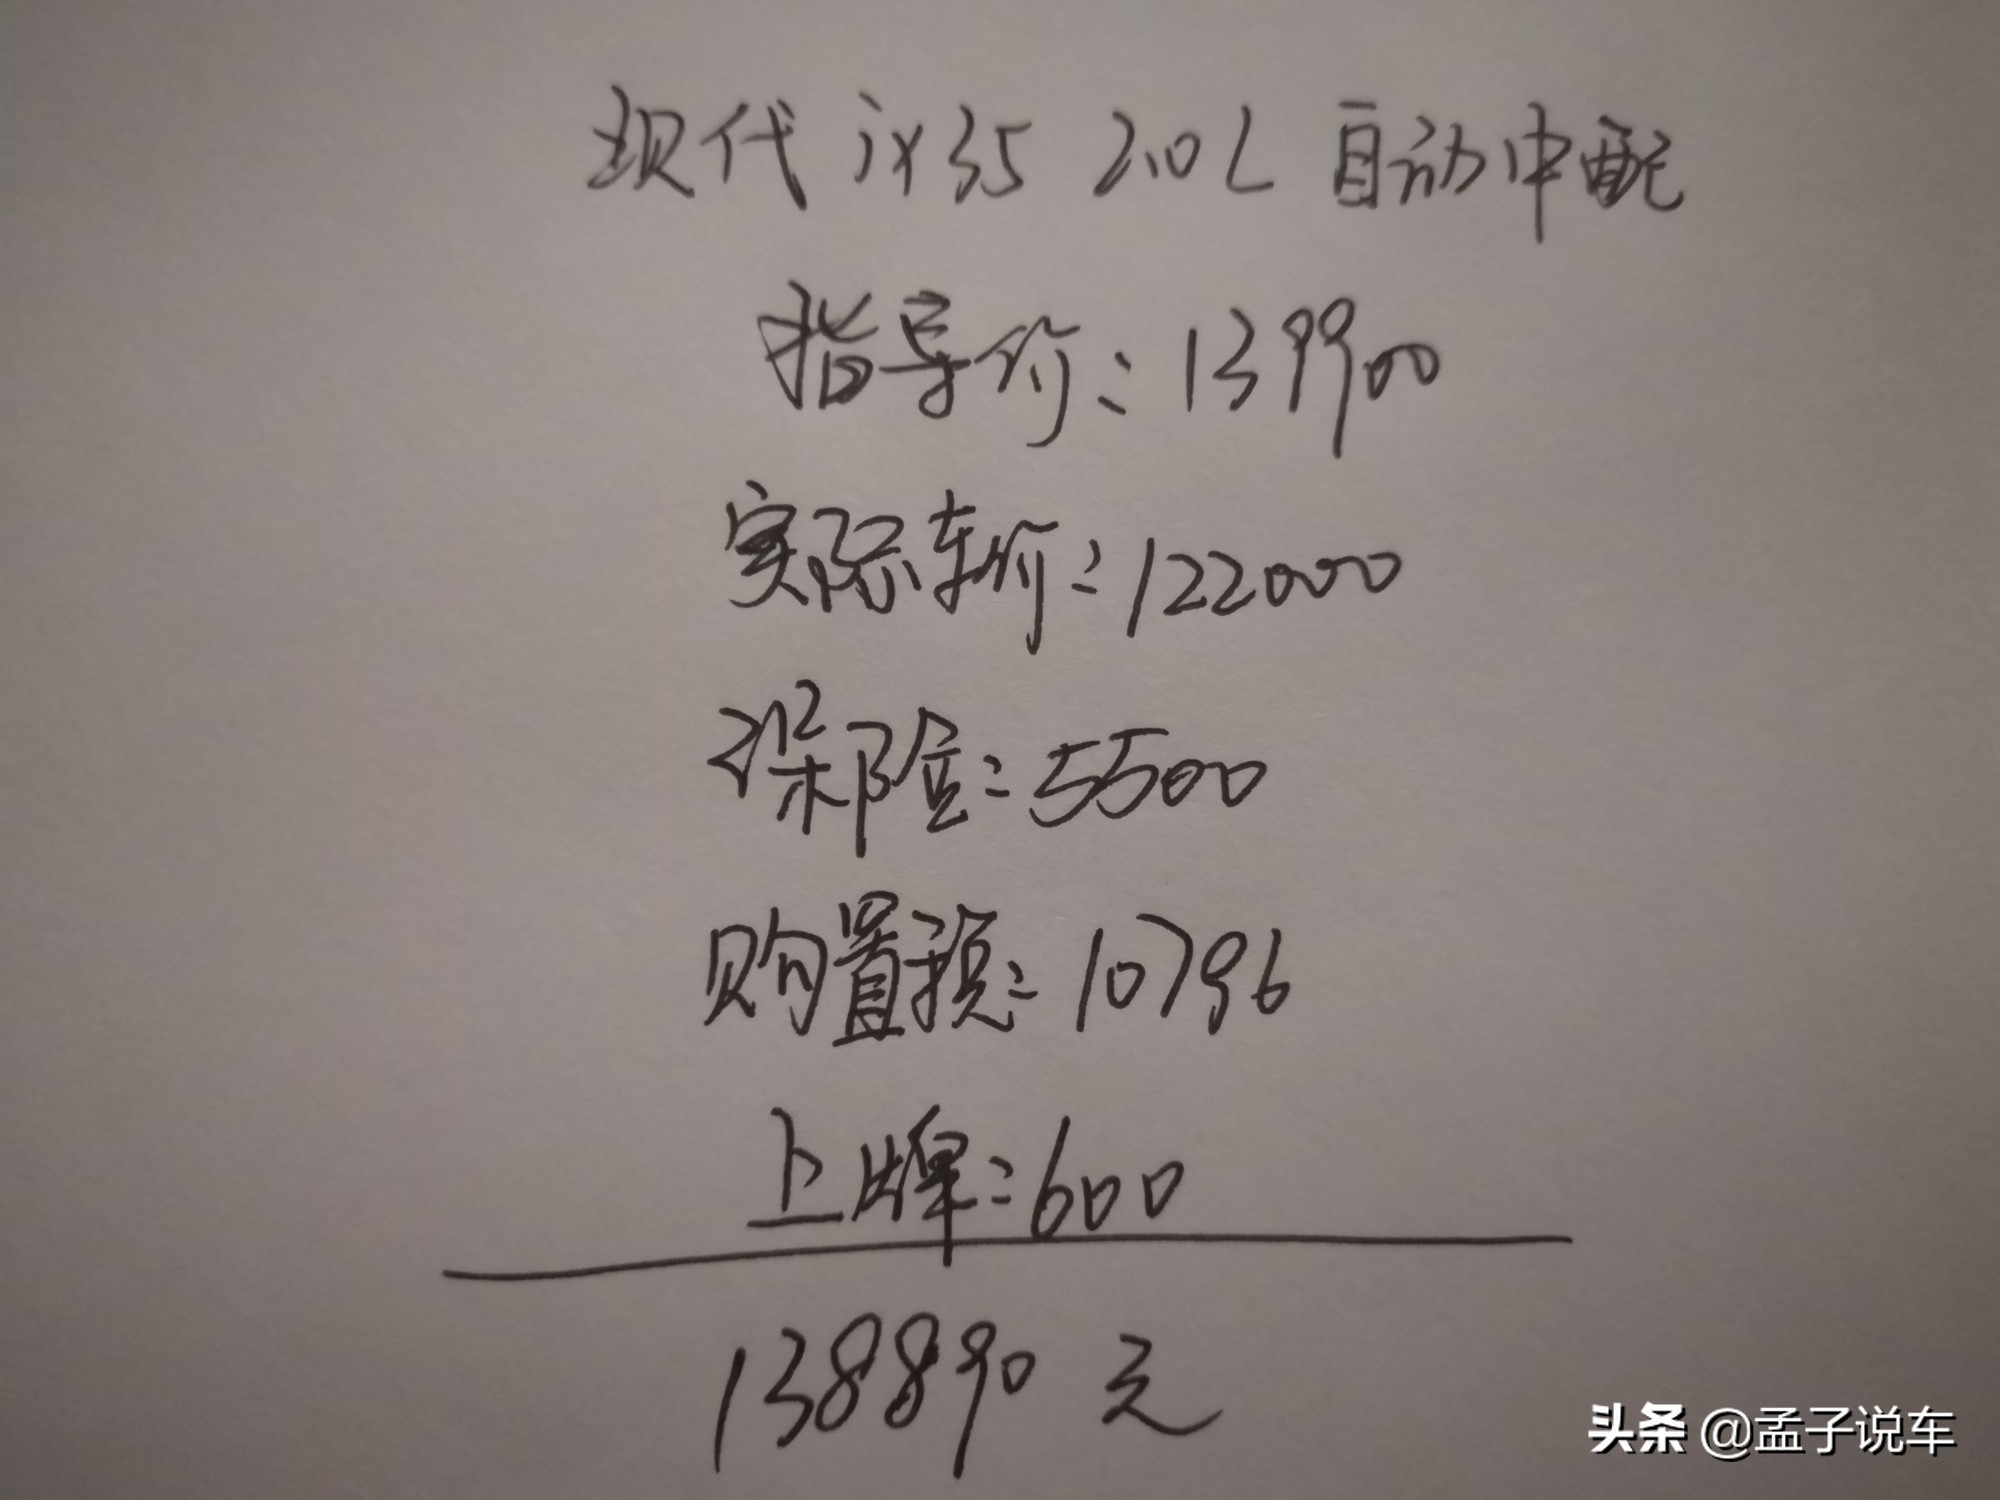 现代 ix35 2.0L 自动中配
指导价：139900
实际车价：122000
保险：5500
购置税：10796
上牌：600
138890 元
头条 @孟子说车